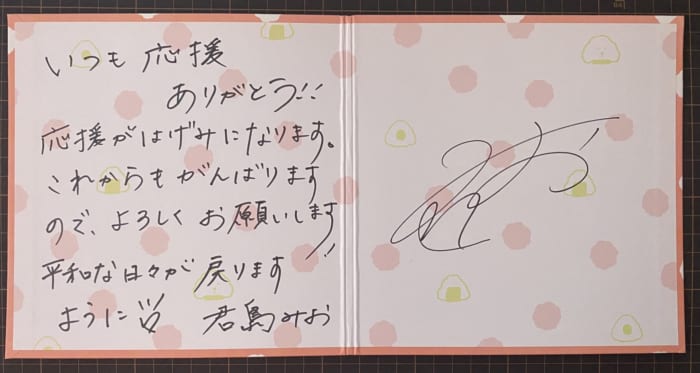 いつも 応援
ありがとう!!
応援がはげみになります。
これからもがんばります
ので、よろしく お願いします!!
平和な日々が 戻ります
ように 君島みお
みお